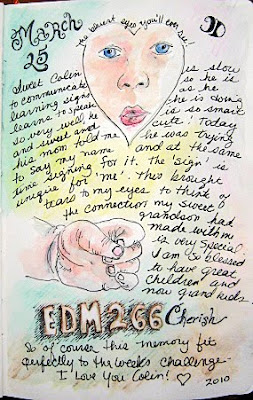 March
25
the sweetest eyes you'll ever see!
Sweet Colin is slow
to communicate so he is
learning signs as he
learns to speak. he is doing
so very well, he is so smart
and sweet and cute! Today
his mom told me he was trying
to say my name and at the same
time signing for it. the 'sign' is
unique for 'me'. this brought
tears to my eyes to think of
the connection my sweet
grandson had
made with me
is very special
I am so blessed
to have great
children and
now grand kids
EDM 266 Cherish
So of course this memory fit
perfectly to the week's challenge
I Love You Colin! ♡ 2010